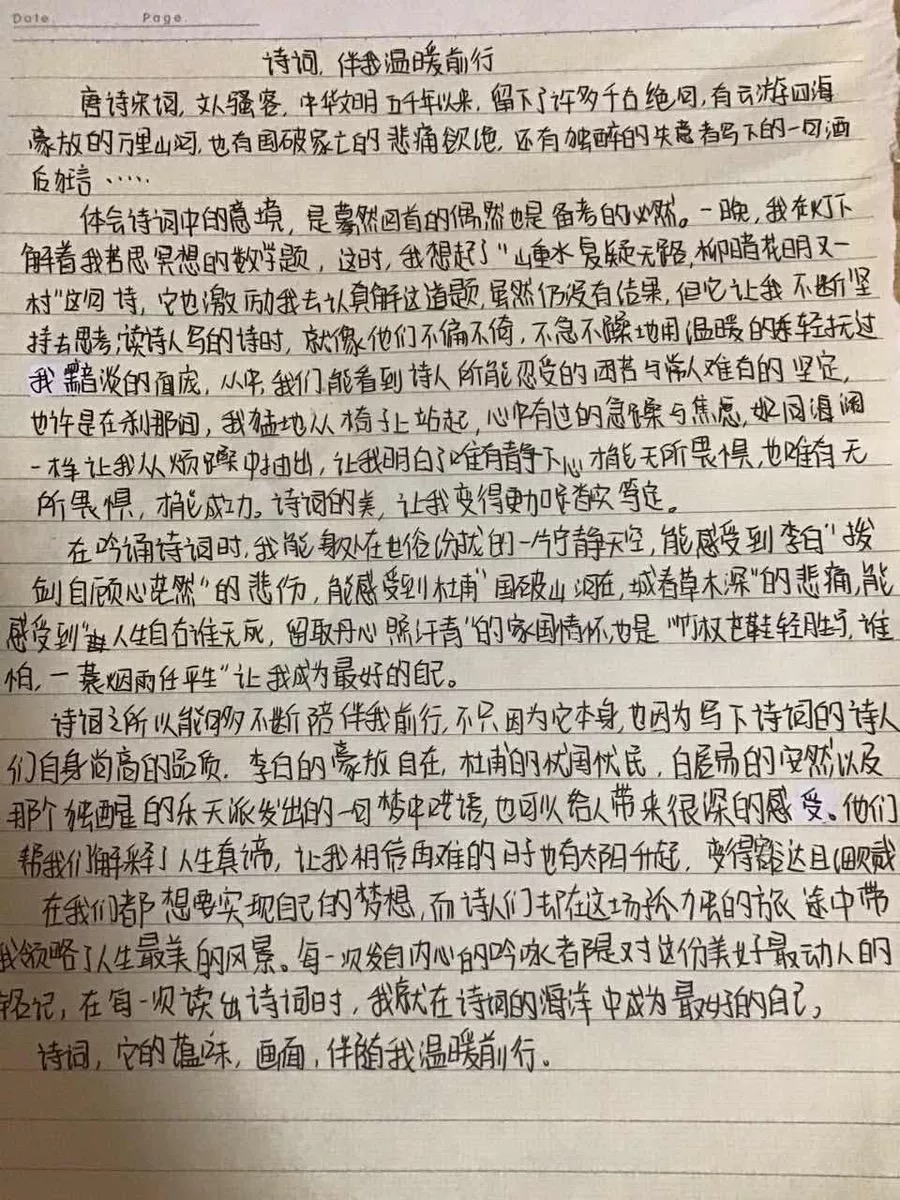 Date
Page
诗词,伴我温暖前行
唐诗宋词,文人骚客,中华文明五千年以来,留下了许多千古绝句,有云游四海
豪放的万里山河,也有国破家亡的悲痛欲绝,还有独醉的失意者写下的一句酒
后狂言……
体会诗词中的意境,是蓦然回首的偶然也是备考的必然。一晚,我在灯下
解着我苦思冥想的数学题,这时,我想起了"山重水复疑无路,柳暗花明又一
村"这句诗,它也激励我去认真解这道题,虽然仍没有结果,但它让我不断坚
持去思考;读诗人写的诗时,就像他们不偏不倚,不急不躁地用温暖的手轻抚过
我黯淡的面庞,从中,我们能看到诗人所能忍受的困苦与常人难有的坚定,
也许是在刹那间,我猛地从椅子上站起,心中有过的急躁与焦虑,如同海阔
一样让我从烦躁中抽出,让我明白了唯有静下心才能无所畏惧,也唯有无
所畏惧,才能成功。诗词的美,让我变得更加踏实笃定。
在吟诵诗词时,我能身处在世俗纷扰的一片宁静天空,能感受到李白"拨
剑自顾心茫然"的悲伤,能感受到杜甫"国破山河在,城春草木深"的悲痛,能
感受到"人生自古谁无死,留取丹心照汗青"的家国情怀,也是"竹杖芒鞋轻胜马,谁
怕,一蓑烟雨任平生"让我成为最好的自己。
诗词之所以能够不断陪伴我前行,不只因为它本身,也因为写下诗词的诗人
们自身尚高的品质.李白的豪放自在,杜甫的忧国忧民,白居易的安然以及
那个独醒的乐天派发出的一句梦中呓语,也可以给人带来很深的感受。他们
帮我们解释了人生真谛,让我相信再难的日子也有太阳升起,变得豁达且
在我们都想要实现自己的梦想,而诗人们却在这场孤独的旅途中带
我领略了人生最美的风景。每一次发自内心的吟咏都是对这份美好最动人的
铭记,在每一次读出诗词时,我就在诗词的海洋中成为最好的自己,
诗词,它的韵味,画面,伴随我温暖前行。